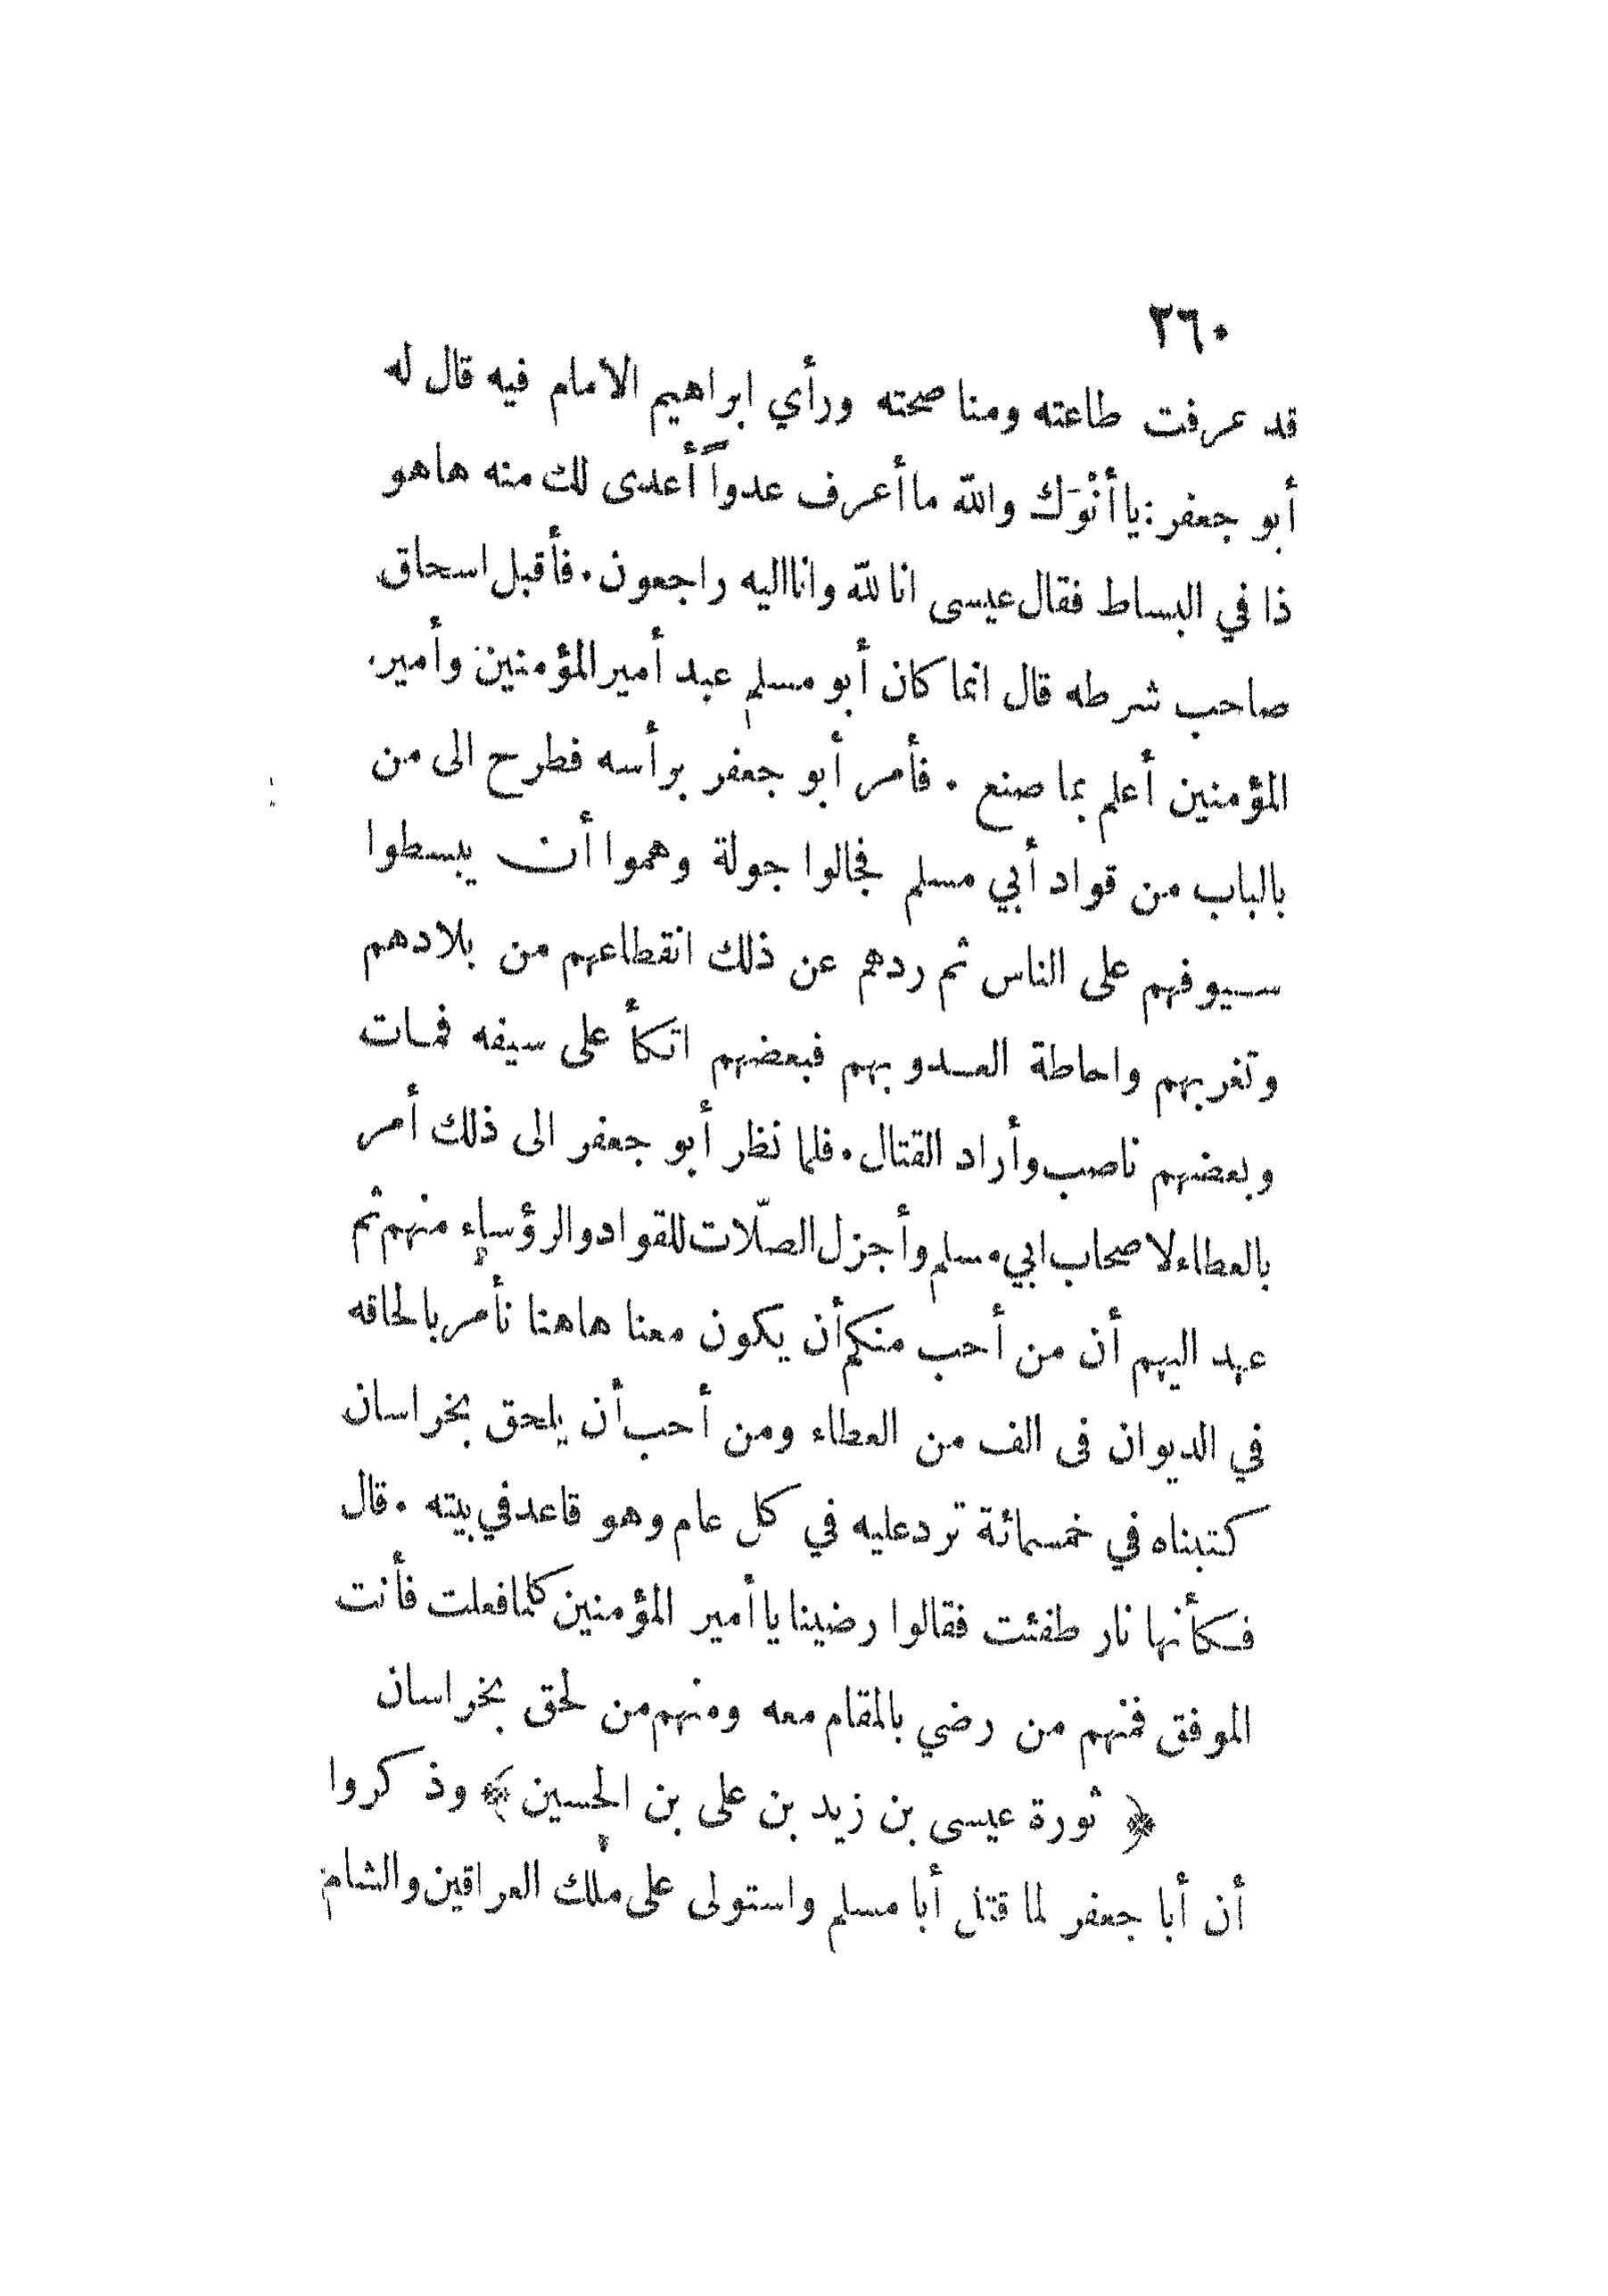 ٢٦٠
قد عرفت طاعته ومناصحته ورأي ابراهيم الامام فيه قال له
أبو جعفر: يا أنْوَك والله ما أعرف عدواً أعدى لك منه هاهو
ذا في البساط فقال عيسى انا لله وانا اليه راجعون. فأقبل اسحاق
صاحب شرطه قال انما كان أبو مسلم عبد أمير المؤمنين وأمير
المؤمنين أعلم بما صنع. فأمر أبو جعفر برأسه فطرح الى من
بالباب من قواد أبي مسلم فجالوا جولة وهموا أن يبسطوا
سيوفهم على الناس ثم ردهم عن ذلك انقطاعهم من بلادهم
وتغربهم واحاطة العدو بهم فبعضهم اتكأ على سيفه فمات
وبعضهم ناصب وأراد القتال. فلما نظر أبو جعفر الى ذلك أمر
بالعطاء لاصحاب ابي مسلم وأجزل الصلّات للقواد والرؤساء منهم ثم
عهد اليهم أن من أحب منكم أن يكون معنا هاهنا نأمر بالحاقه
في الديوان فى الف من العطاء ومن أحب أن يلحق بخراسان
كتبناه في خمسمائة ترد عليه في كل عام وهو قاعد في بيته. قال
فكأنها نار طفئت فقالوا رضينا يا أمير المؤمنين كلما فعلت فأنت
الموفق فمنهم من رضي بالمقام معه ومنهم من لحق بخراسان
﴿ ثورة عيسى بن زيد بن على بن الحسين ﴾ وذكروا
أن أبا جعفر لما قتل أبا مسلم واستولى على ملك العراقين والشام